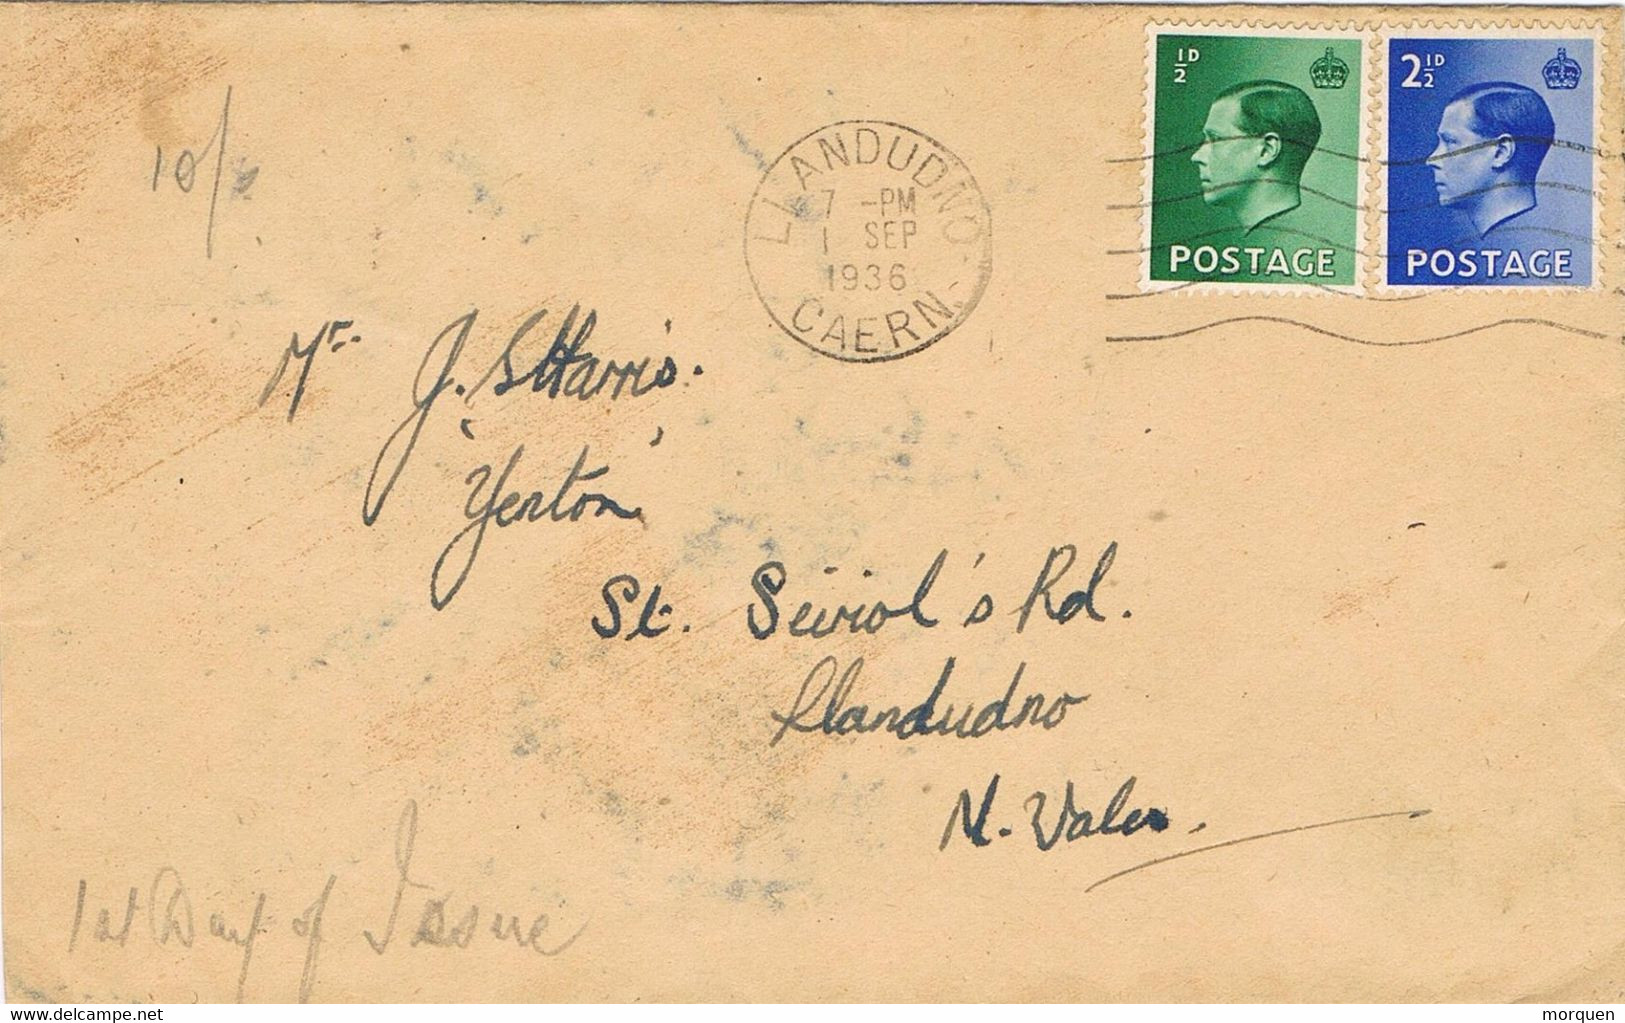 10/
½D
POSTAGE
2½D
POSTAGE
LLANDUDNO.
7 -PM
1 SEP
1936
CAERN.
Mr. J. S Harris.
'Yenton'
St. Seiriol's Rd.
Llandudno
N. Wales.
1st Day of Issue
www.delcampe.net
morquen